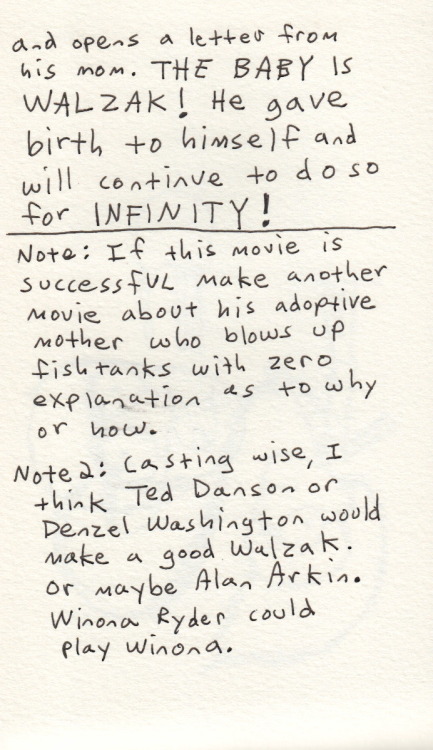 and opens a letter from
his mom. THE BABY IS
WALZAK! He gave
birth to himself and
will continue to do so
for INFINITY!
Note: If this movie is
successfUL make another
movie about his adoptive
mother who blows up
fishtanks with zero
explanation as to why
or how.
Note 2: Casting wise, I
think Ted Danson or
Denzel Washington would
make a good Walzak.
Or maybe Alan Arkin.
Winona Ryder could
play Winona.